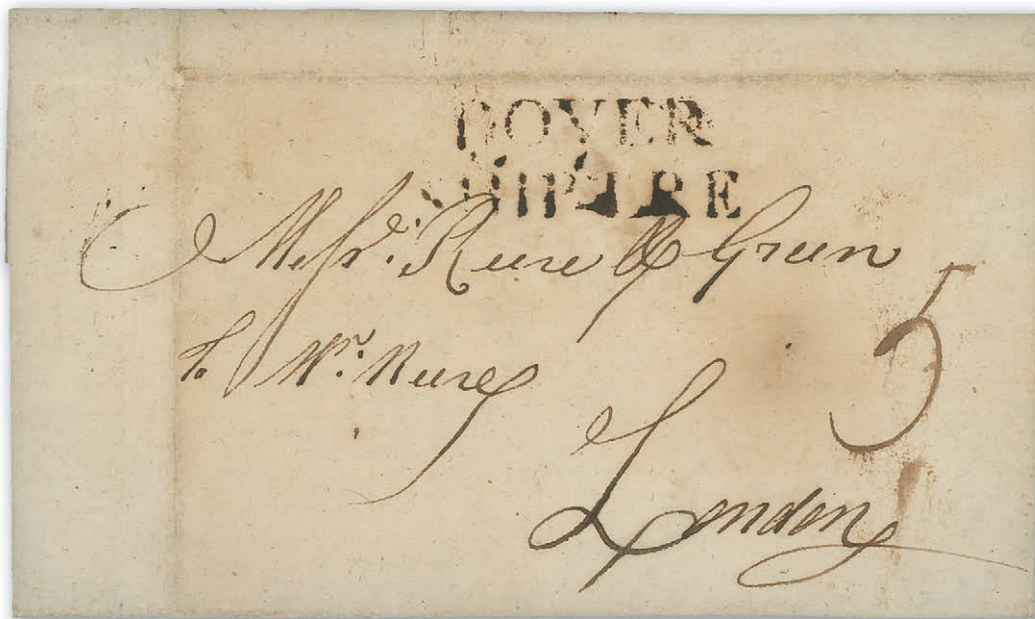 DOVER
SHIP LRE
Messrs. Reeve & Green
to Wm. Reeve
5
London